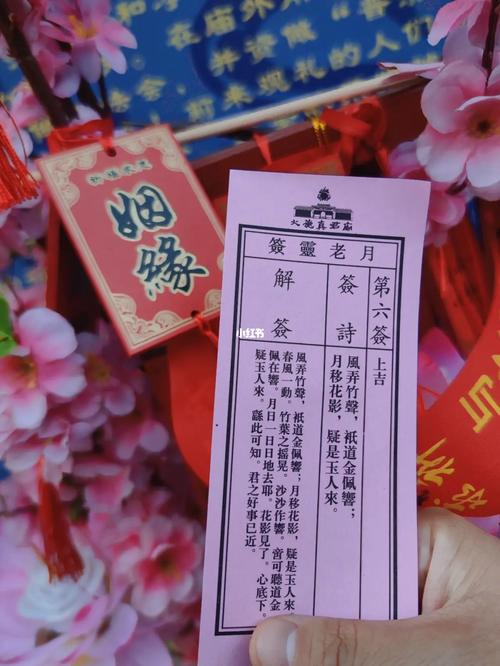 在庙外
并资做“善
前来观礼的人们
姻緣
真君廟
月老靈簽
第六簽
上吉
簽詩
風弄竹聲，祇道金佩響；
月移花影，疑是玉人來。
解簽
風弄竹聲，祇道金佩響；月移花影，疑是玉人來
春風一動。竹葉之搖晃。沙沙作響。啻可聽道金
佩在響。月日一日日地去耶。花影見了。心底下。
疑玉人來。繇此可知。君之好事已近。
小红书